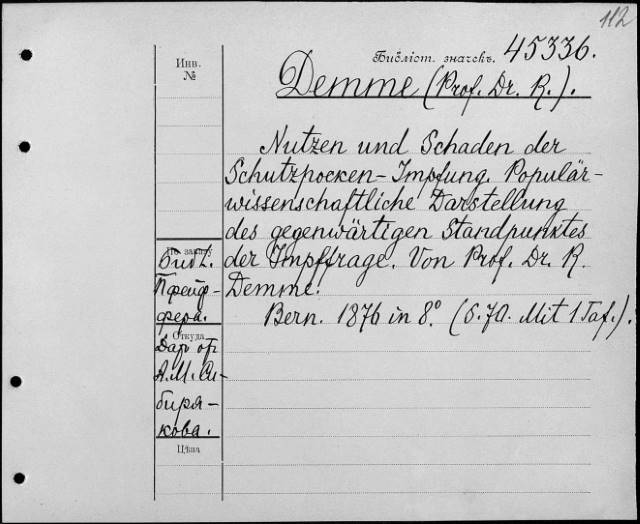 112
Инв.
№
Библіот. значекъ. 45336.
Demme (Prof. Dr. R.).
Nutzen und Schaden der
Schutzpocken-Impfung. Populär-
wissenschaftliche Darstellung
des gegenwärtigen Standpunktes
der Impffrage. Von Prof. Dr. R.
Demme.
Bern. 1876 in 8º (S. 70. Mit 1 Taf.).
По заказу
Библ.
Пфейф-
фера.
Откуда
Дар от
А. М. Си-
биря-
кова.
Цѣна